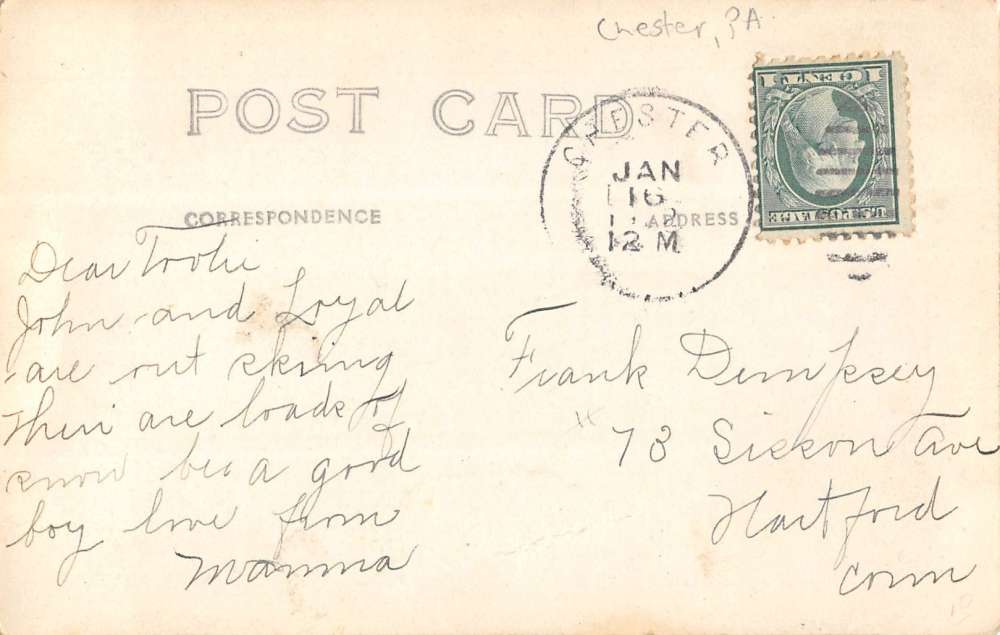 Chester, PA
POST CARD
CHESTER
JAN
16
12 M
1 CENT 1
U.S. POSTAGE
CORRESPONDENCE
ADDRESS
Dear Tootie
John and Loyal
are out skiing
Their are loads of
snow be a good
boy love from
Mamma
Frank Dempsey
73 Sisson Ave
Hartford
Conn